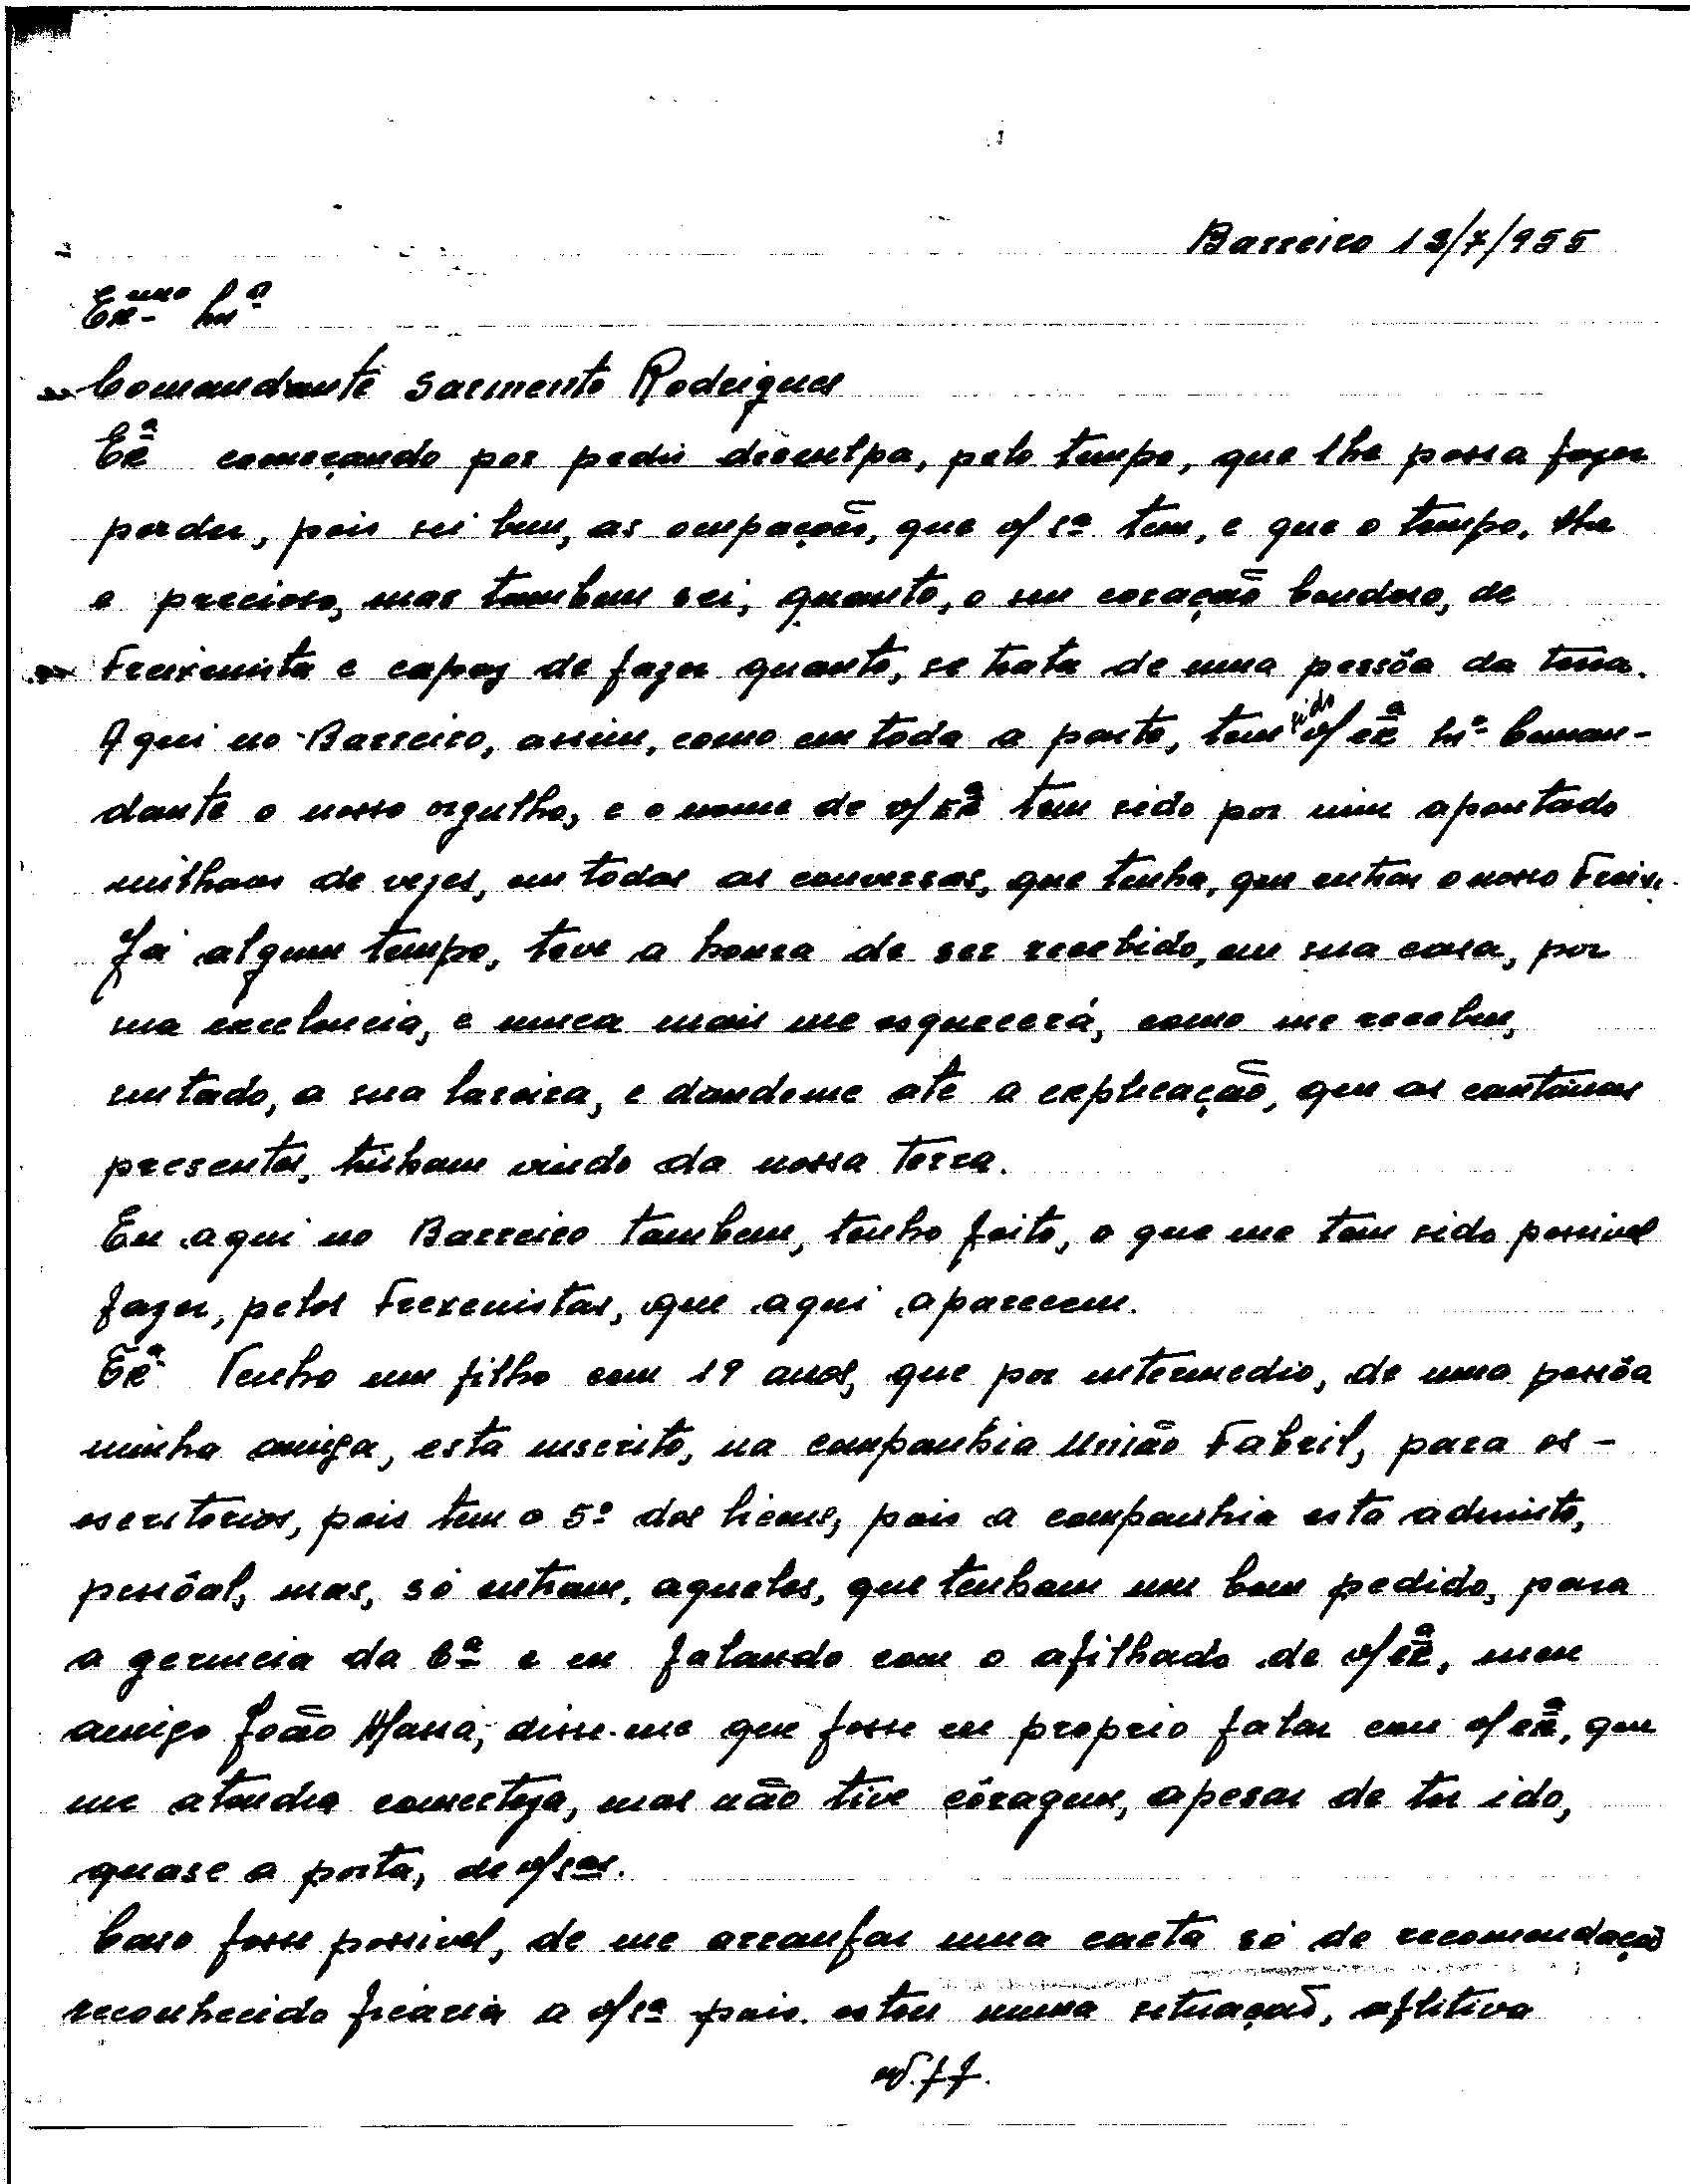 Barreiro 13/7/955
Exmo Snr
Comandante Sarmento Rodrigues
Exª começando por pedir desculpa, pelo tempo, que lhe possa fazer
perder, pois sei bem, as ocupações, que v/ sª tem, e que o tempo, lhe
e precioso, mas tambem sei, quanto, o seu coração bondoso, de
Freixenista e capaz de fazer quanto, se trata de uma pessôa da terra.
Aqui no Barreiro, assim, como em toda a parte, tem sido v/ exª snr Coman-
dante o nosso orgulho, e o nome de v/ Exª tem sido por mim apontado
milhões de vezes, em todas as conversas, que tenho, que entrar o nosso Freix.
Já algum tempo, teve a honra de ser recebido, em sua casa, por
sua excelencia, e nunca mais me esquecerá, como me recebeu,
sentado, a sua lareira, e dandome até a explicação, que os cantaros
presentes, tinham vindo da nossa Terra.
Eu aqui no Barreiro tambem, tenho feito, o que me tem sido possivel
fazer, pelos Frexenistas, que aqui aparecem.
Exª Tenho um filho com 19 anos, que por intermedio, de uma pessôa
minha amiga, esta inscrito, na companhia União Fabril, para os -
escritorios, pois tem o 5º dos liceus, pois a companhia esta admisto,
pessôal, mas, só entram, aqueles, que tenham um bom pedido, para
a gerencia da Cª e eu falando com o afilhado de v/ exª, meu
amigo João Massa, disse-me que fosse eu proprio falar com v/ exª, que
me atendia comcerteza, mas não tive côragem, apesar de ter ido,
quase a porta, de v/ sas.
Caso fosse possivel, de me arranjar uma carta só de recomendação
reconhecido ficaria a v/ sª pois. estou numa situação, aflitiva